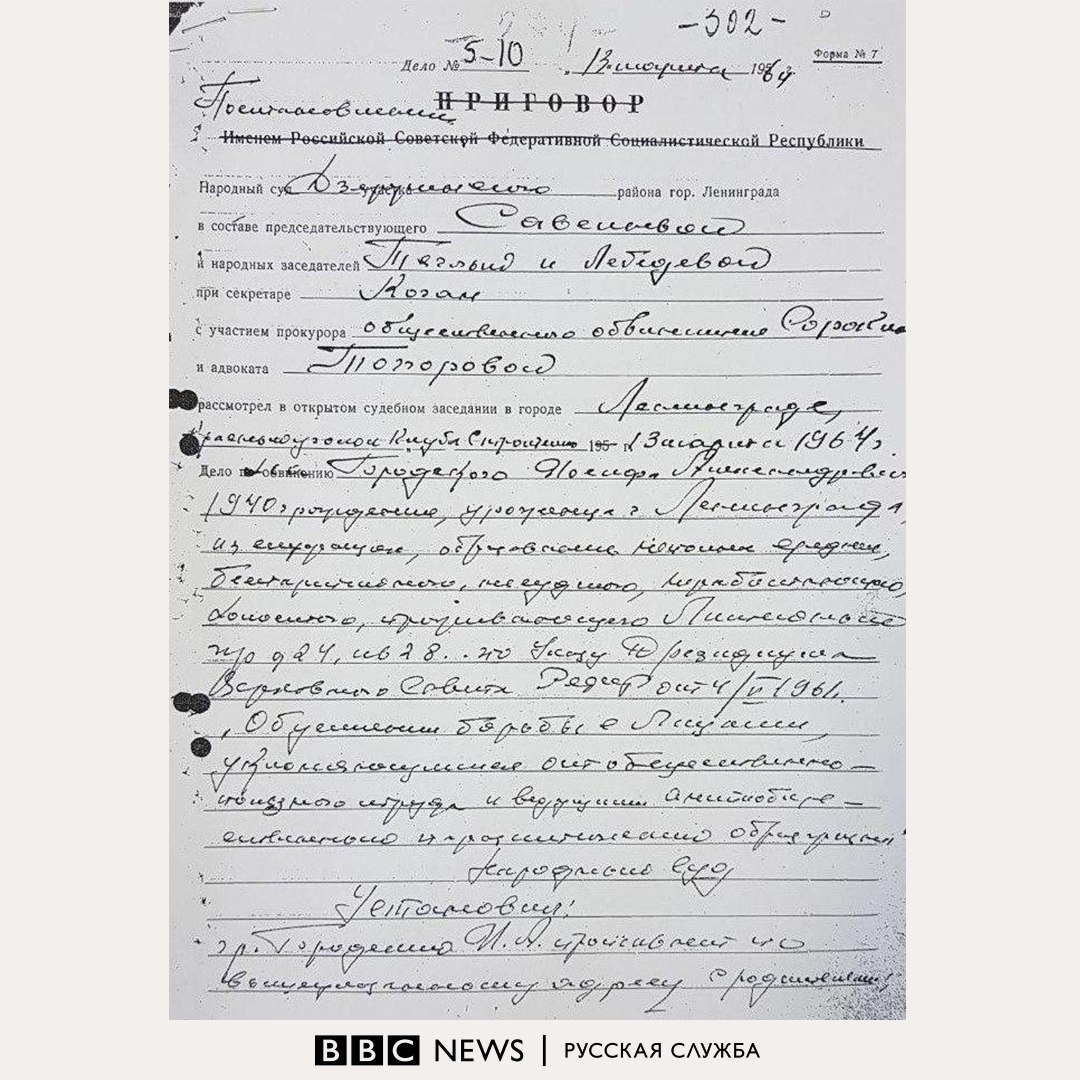 -302-
Форма № 7
Дело № 5-10 13 марта 1964
Постановление ПРИГОВОР
Именем Российской Советской Федеративной Социалистической Республики
Народный суд Дзержинского района гор. Ленинграда
в составе председательствующего Савельевой
и народных заседателей Тяглый и Лебедевой
при секретаре Коган
с участием прокурора общественного обвинителя Сорокин
и адвоката Топоровой
рассмотрел в открытом судебном заседании в городе Ленинграде,
клуба 195 г. 13 марта 1964 г.
Дело по обвинению Бродского Иосифа Александрович
1940 г рождения, уроженца г Ленинграда,
из служащих, образование
беспартийного, несудимого, неработающего,
холостого, проживающего Литейный
пр д 24, кв 28 по Указу Президиума
Верховного Совета РСФСР от 4/V 1961.
"Об усилении борьбы с лицами,
уклоняющимися от общественно-
полезного труда и ведущими антиобще-
ственный паразитический образ жизни"
Народный суд
Установил:
гр. Бродский И. А. проживает по
вышеуказанному адресу с родителями,
BBC NEWS | РУССКАЯ СЛУЖБА